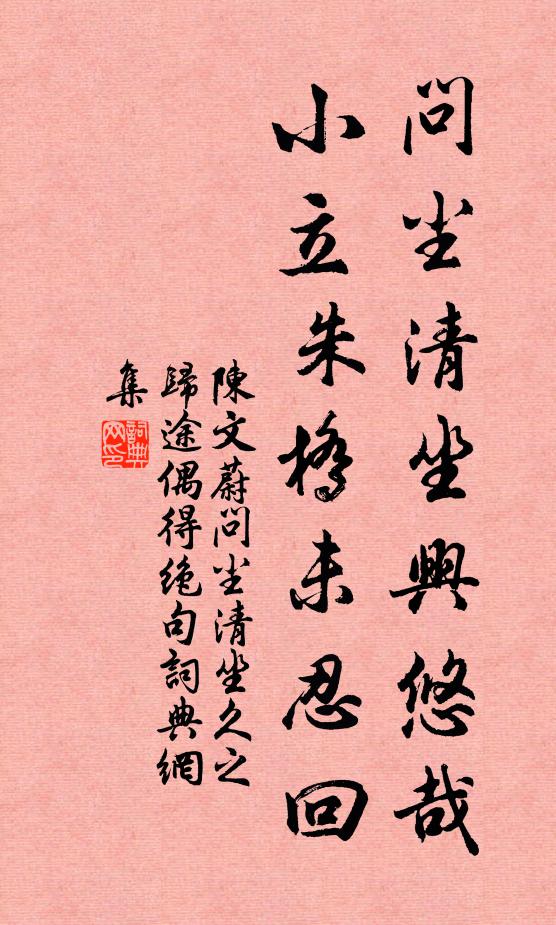 問尘清坐興悠哉
小立朱橋未忍回
陳文蔚問尘清坐久之
歸途偶得绝句詞典網
集
詞典
网印